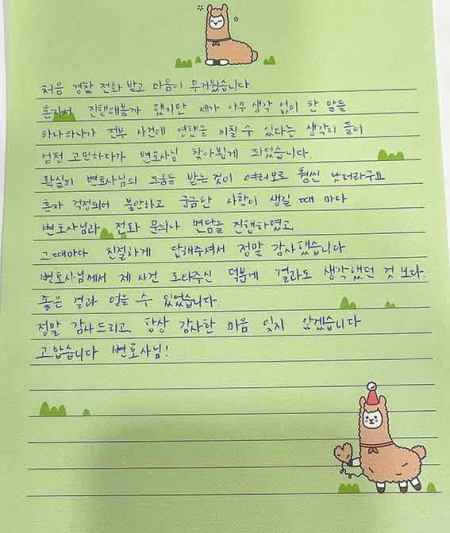 처음 경찰 전화 받고 마음이 무거웠습니다
혼자서 진행해볼까 했지만 제가 아무 생각 없이 한 말들
하나하나가 전부 사건에 영향을 미칠 수 있다는 생각이 들어
엄청 고민하다가 변호사님 찾아뵙게 되었습니다.
확실히 변호사님의 도움을 받는것이 여러모로 훨씬 낫더라구요
혼자 걱정되어 불안하고 궁금한 사항이 생길 때 마다
변호사님과 전화 문의나 면담을 진행하였고,
그때마다 친절하게 답해주셔서 정말 감사했습니다
변호사님께서 제 사건 도와주신 덕분에 결과도 생각했던 것 보다
좋은 결과 얻을 수 있었습니다.
정말 감사드리고 항상 감사한 마음 잊지 않겠습니다
고맙습니다 변호사님!